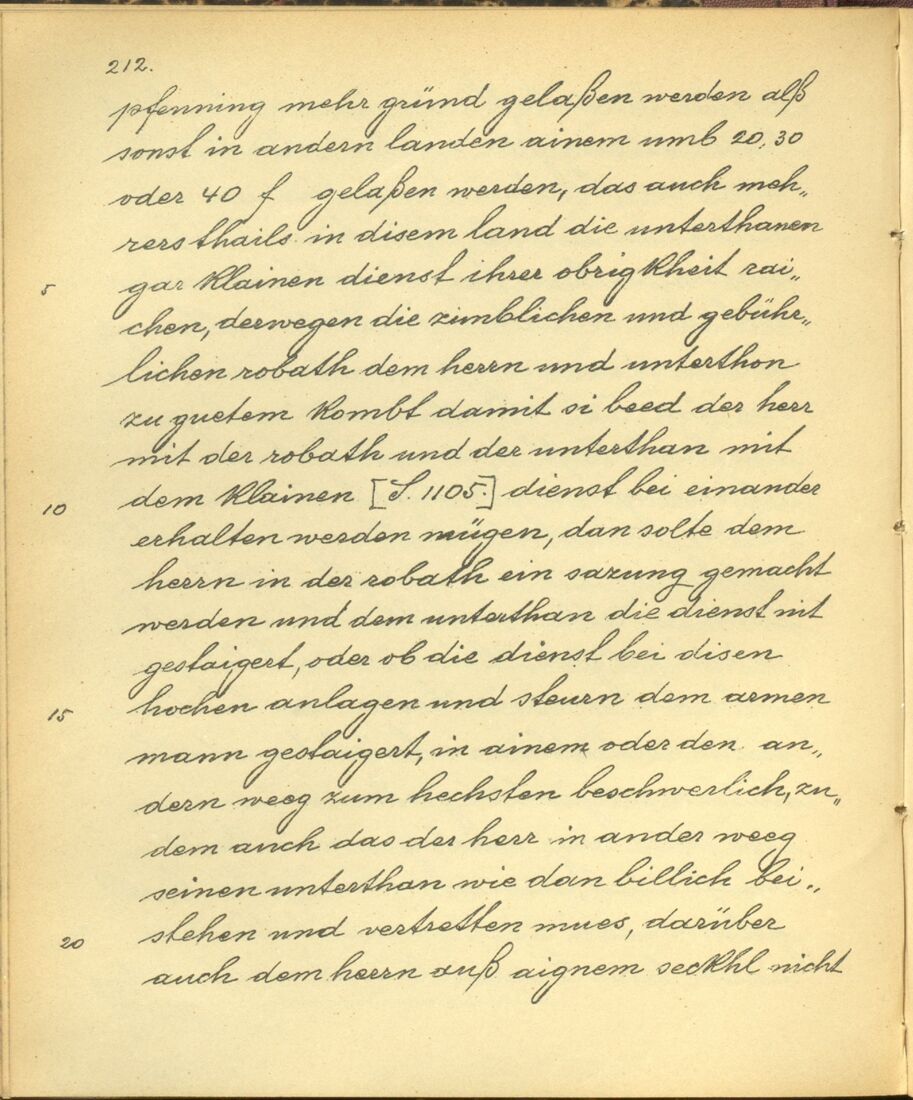 212.
pfenning mehr gründ gelaßen werden alß
sonst in andern landen ainem umb 20, 30
oder 40 f gelaßen werden, das auch meh„
rers thails in disem land die unterthanen
5 gar klainen dienst ihrer obrigkheit rai„
chen, derwegen die zimblichen und gebühr„
lichen robath dem herrn und unterthon
zu guetem kombt damit si beed der herr
mit der robath und der unterthan mit
10 dem klainen [S. 1105.] dienst bei einander
erhalten werden mügen, dan solte dem
herrn in der robath ein sazung gemacht
werden und dem unterthan die dienst nit
gestaigert, oder ob die dienst bei disen
15 hochen anlagen und steurn dem armen
mann gestaigert, in ainem oder den an„
dern weeg zum hechsten beschwerlich, zu„
dem auch das der herr in ander weeg
seinen unterthan wie dan billich bei„
20 stehen und vertretten mues, darüber
auch dem herrn auß aignem seckhl nicht